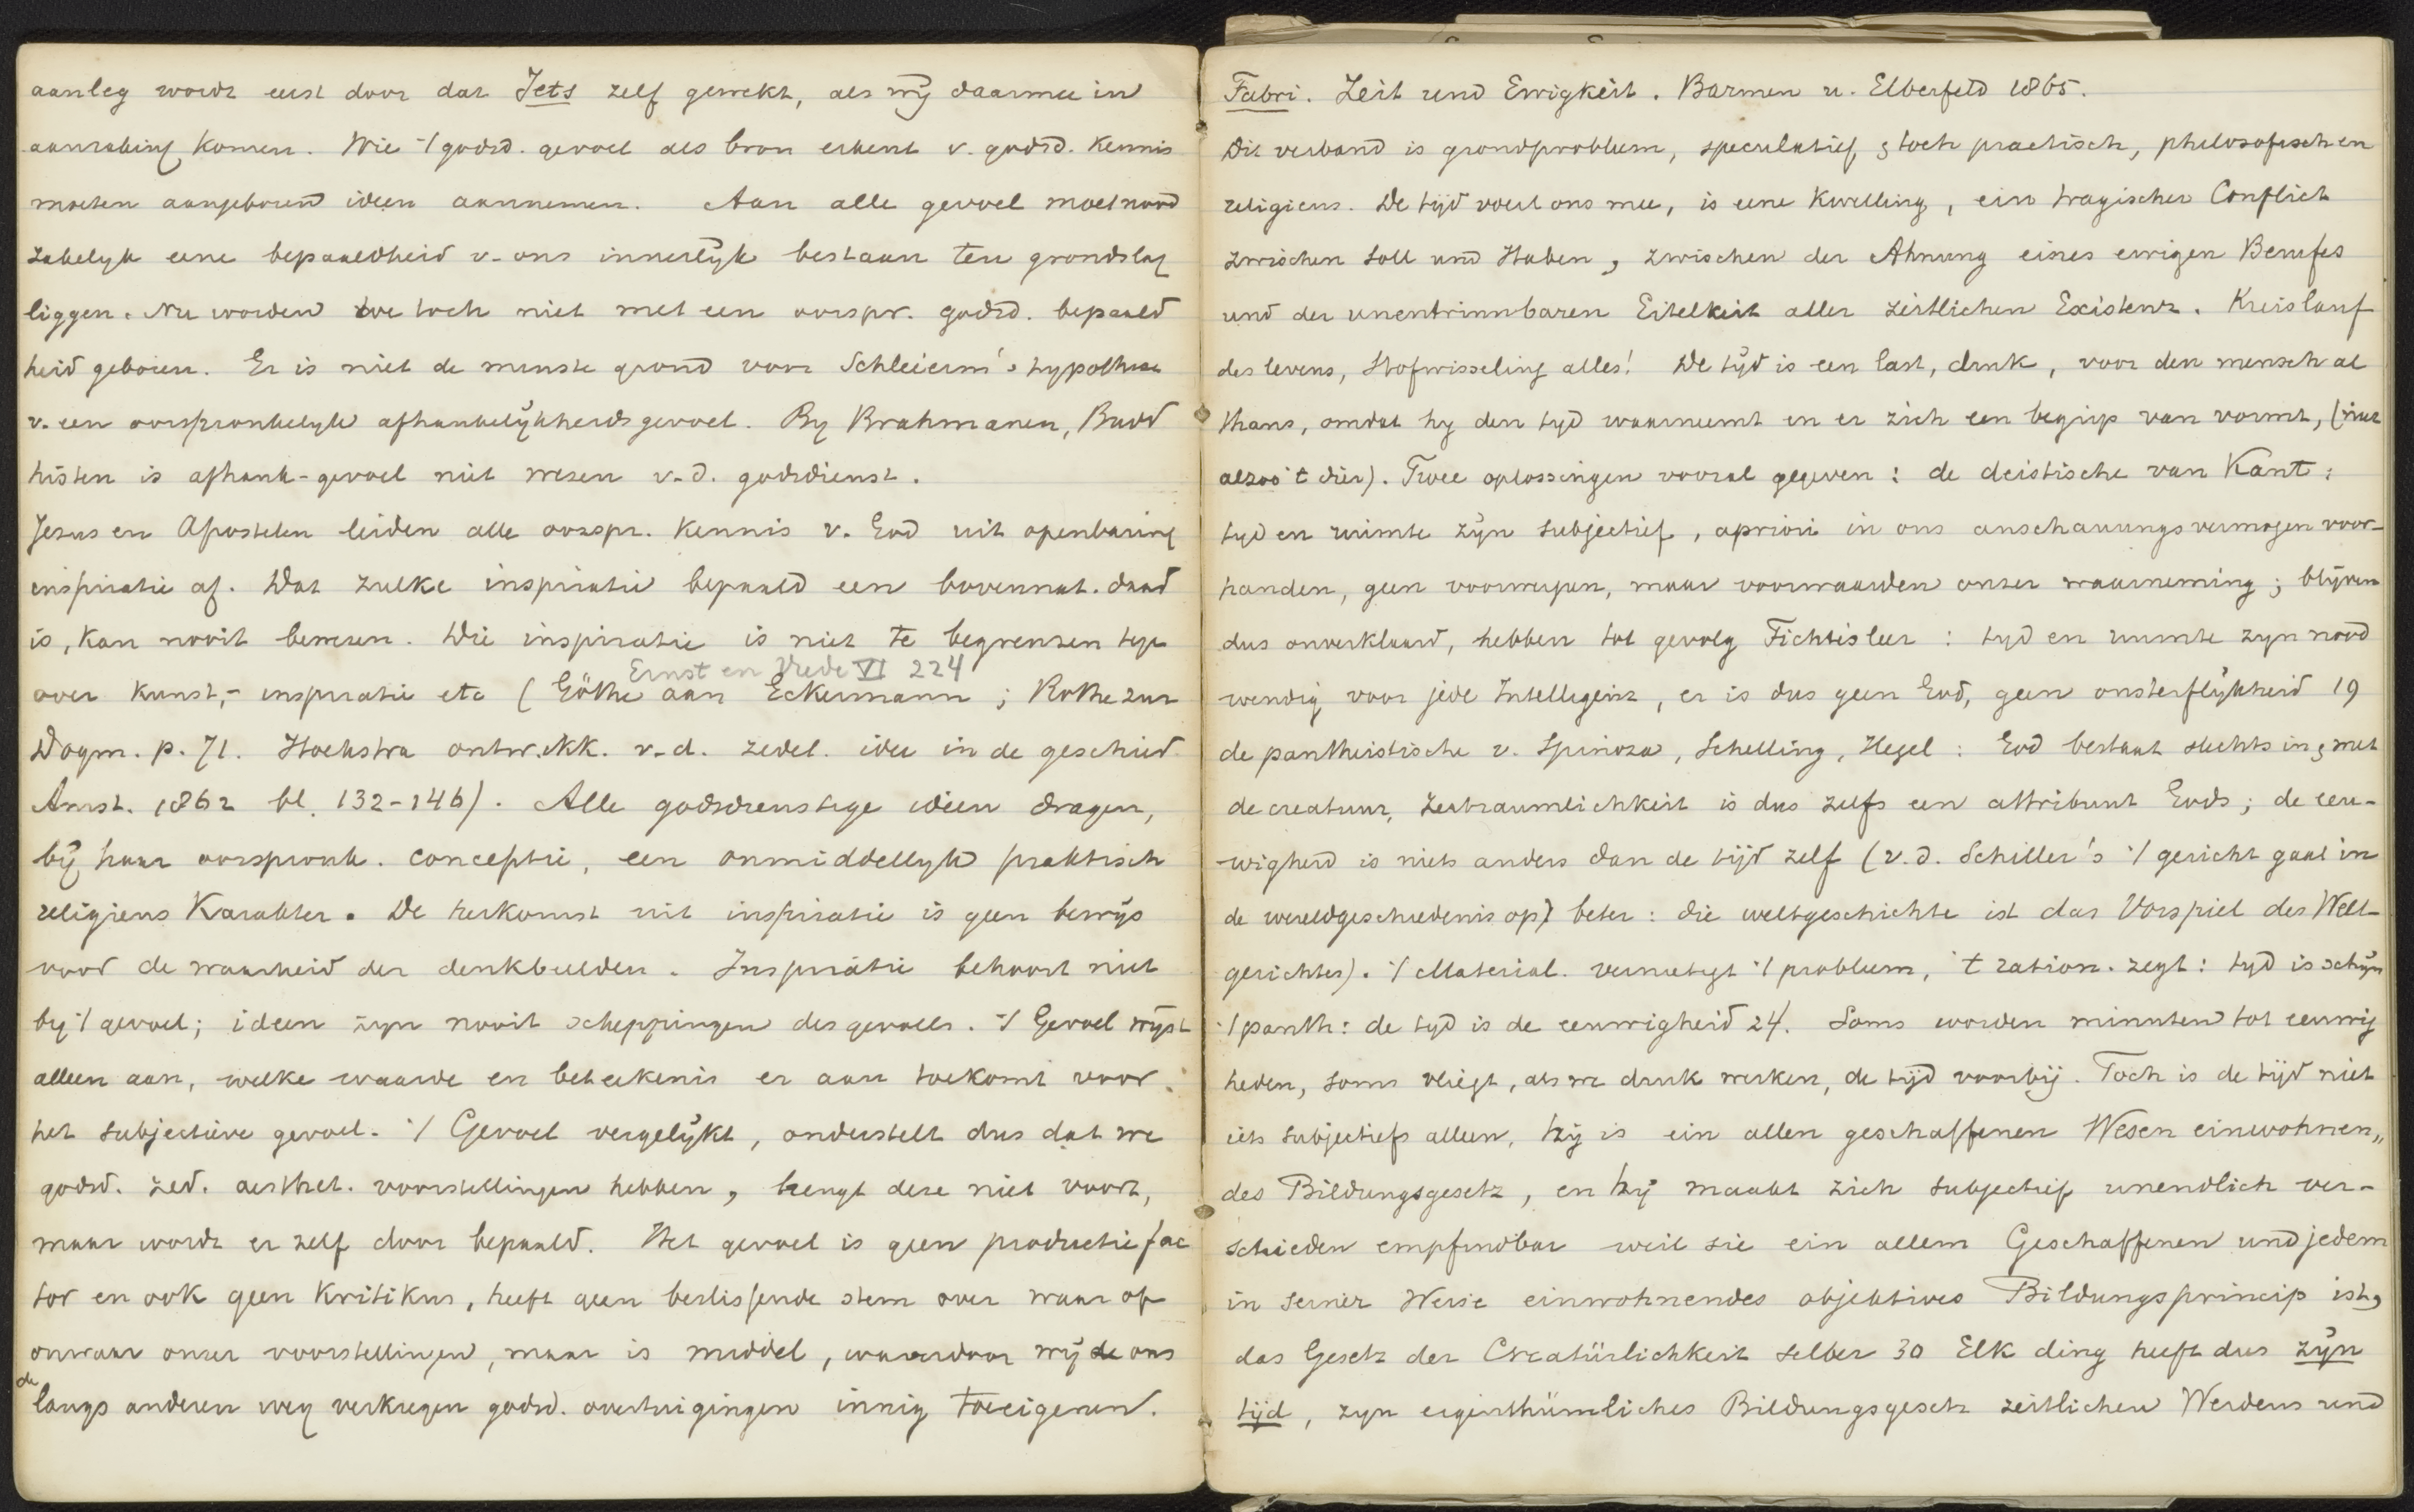 aanleg wordt eerst door dat Iets zelf gewekt, als wij daarmee in
aanraking komen. Wie 't godsd. gevoel als bron erkent v. godsd. kennis
moeten aangeboren ideen aannemen. Aan alle gevoel moet nood
zakelyk eene bepaaldheid v. ons innerlyk bestaan ten grondslag
liggen. Nu worden we toch niet met een oorspr. godsd. bepaald
heid geboren. Er is niet de minste grond voor Schleierm's hypothese
v. een oorspronkelyk afhankelijkheidsgevoel. By Brahmanen, Budd
histen is afhank-gevoel niet wezen v. d. godsdienst.
Jezus en Apostelen leiden alle oorspr. kennis v. God uit openbaring
inspiratie af. Dat zulke inspiratie bepaald een bovennat. daad
is, kan nooit bewezen. Die inspiratie is niet te begrenzen tge
Ernst en Vrede VI 224
over kunst,- inspiratie etc (Göthe aan Eckermann; Rothe zur
Dogm. p. 71. Hoekstra ontwikk. v. d. zedel. idee in de geschied.
Amst. 1862 bl. 132-146). Alle godsdienstige ideen dragen,
bij haar oorspronk. conceptie, een onmiddellyk praktisch
religieus karakter. De herkomst uit inspiratie is geen bewijs
voor de waarheid der denkbeelden. Inspiratie behoort niet
by 't gevoel; ideen zyn nooit scheppingen des gevoels. 't Gevoel wijst
alleen aan, welke waarde en beteekenis er aan toekomt voor
het subjectieve gevoel. 't Gevoel vergelijkt, onderstelt dus dat we
godsd. zed. aesthet. voorstellingen hebben, brengt deze niet voort,
maar wordt er zelf door bepaald. Het gevoel is geen productie fac
tor en ook geen kritikus, heeft geen beslissende stem over waar of
onwaar onzer voorstellingen, maar is middel, waardoor wij de ons
de langs anderen weg verkregen godsd. overtuigingen innig toeeigenen.
Fabri. Zeit und Ewigkeit. Barmen u. Elberfeld 1865.
Dit verband is grondprobleem, speculatief & toch practisch, philosofisch en
religieus. De tijd voert ons mee, is eene kwelling, ein tragischer Conflict
zwischen Soll und Haben, zwischen der Ahnung eines ewigen Berufes
und der unentrinnbaren Eitelkeit aller zeitlichen Existenz. Kreislauf
des levens, Stofwisseling alles! De tijd is een last, druk, voor den mensch al
thans, omdat hy den tyd waarneemt en er zich een begrip van vormt, (niet
alzoo 't dier). Twee oplossingen vooral gegeven: de deistische van Kant:
tyd en ruimte zijn subjectief, apriori in ons anschauungsvermogen voor-
handen, geen voorwerpen, maar voorwaarden onzer waarneming; blijven
dus onverklaard, hebben tot gevolg Fichtisleer: tyd en ruimte zyn nood
wendig voor jede Intelligenz, er is dus geen God, geen onsterflijkheid 19
de pantheistische v. Spinoza, Schelling, Hegel: God bestaat slechts in & met
de creatuur, Zeitraumlichkeit is dus zelfs een attribuut Gods; de eeu-
wigheid is niets anders dan de tijd zelf (v. d. Schiller's 't gericht gaat in
de wereldgeschiedenis op) beter: die weltgeschichte ist das Vorspiel des Welt-
gerichtes). 't Material. vernietigt 't probleem, 't ration. zegt: tyd is schijn
't panth: de tyd is de eeuwigheid 24. Soms worden minuten tot eeuwig
heden, soms vliegt, als we druk werken, de tijd voorbij. Toch is de tijd niet
iets subjectiefs alleen, hij is ein allen geschaffenen Wesen einwohnen„
des Bildungsgesetz, en hij maakt zich subjectief unendlich ver-
schieden empfindbar weil sie ein allem Geschaffenen und jedem
in seiner Weise einwohnendes objektives Bildungsprincip ist,
das Gesetz der Creatürlichkeit selber 30 Elk ding heeft dus zijn
tijd, zyn eigenthümliches Bildungsgesetz zeitlichen Werdens und